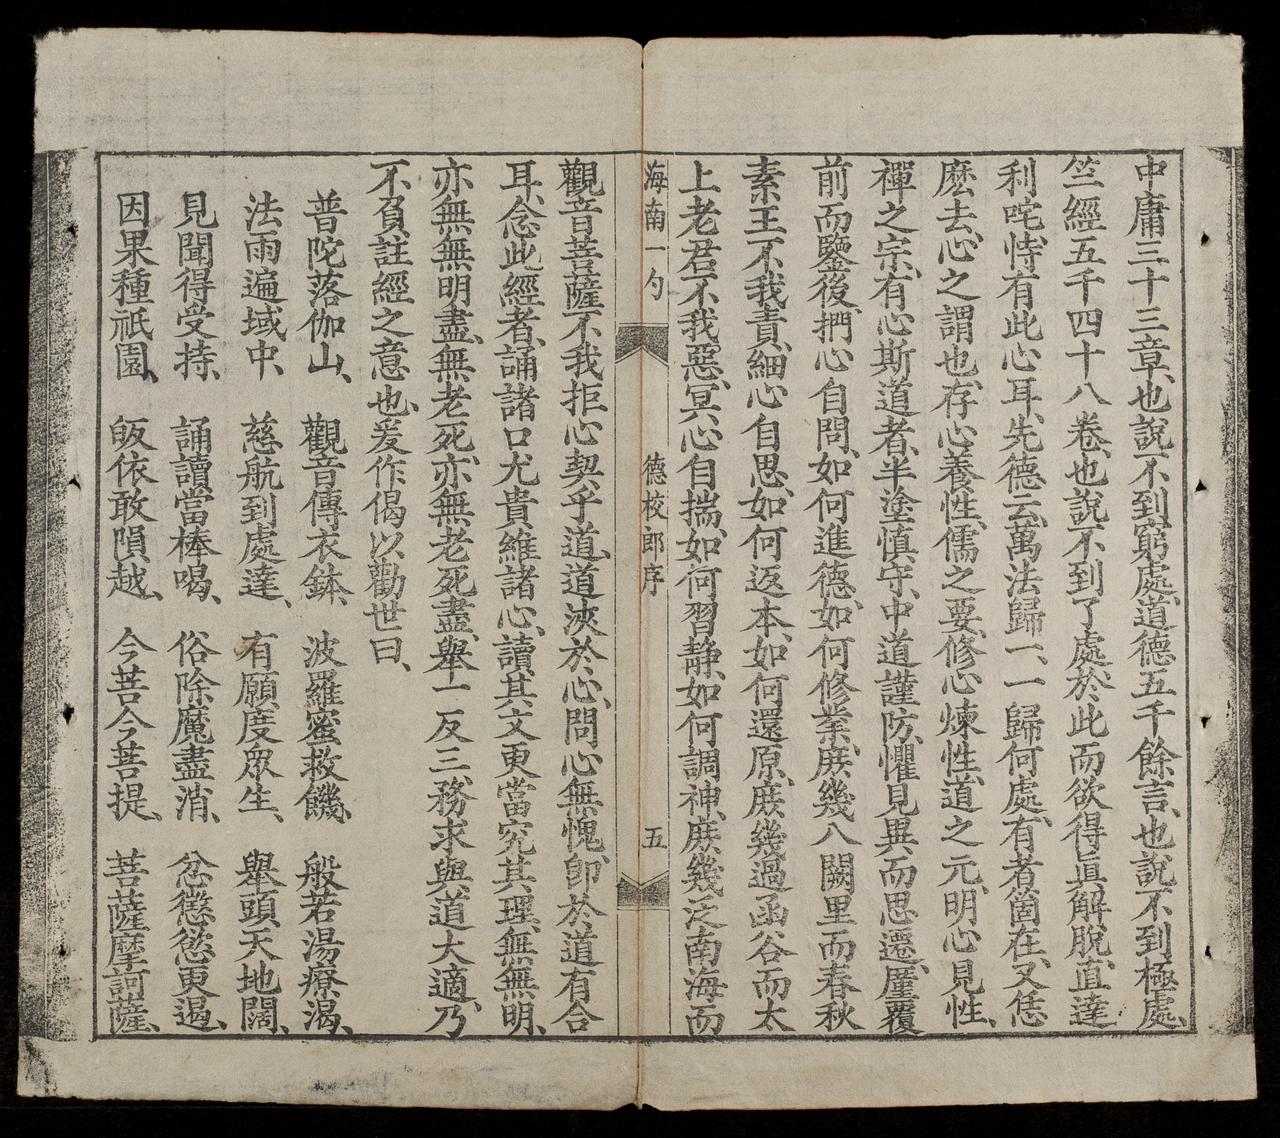 中庸三十三章、也說不到窮處、道德五千餘言、也說不到極處、
竺經五千四十八卷、也說不到了處、於此而欲得眞解脫、直達
利咤、恃有此心耳、先德云、萬法歸一、一歸何處、有者箇在、又恁
麽去、心之謂也、存心養性、儒之要、修心煉性、道之元、明心見性、
禪之宗、有心斯道者、半塗愼守、中道謹防、懼見異而思遷、厪覆
前而鑒後、捫心自問、如何進德、如何修業、庻幾入闕里而春秋
素王不我責、細心自思、如何返本、如何還原、庻幾過函谷而太
上老君不我惡、冥心自揣、如何習靜、如何調神、庻幾泛南海而
海南一勺 德校郎序 五
觀音菩薩不我拒、心契乎道、道浹於心、問心無愧、卽於道有合
耳、念此經者、誦諸口尤貴維諸心、讀其文更當究其理、無無明、
亦無無明盡、無老死、亦無老死盡、舉一反三、務求與道大適、乃
不負註經之意也、爰作偈以勸世曰、
普陀落伽山、 觀音傳衣鉢、 波羅蜜救饑、 般若湯療渴、
法雨遍域中、 慈航到處達、 有願度眾生、 舉頭天地闊、
見聞得受持、 誦讀當棒喝、 俗除魔盡消、 忿懲慾更遏、
因果種祇園、 皈依敢隕越、 今菩今菩提、 菩薩摩訶薩、